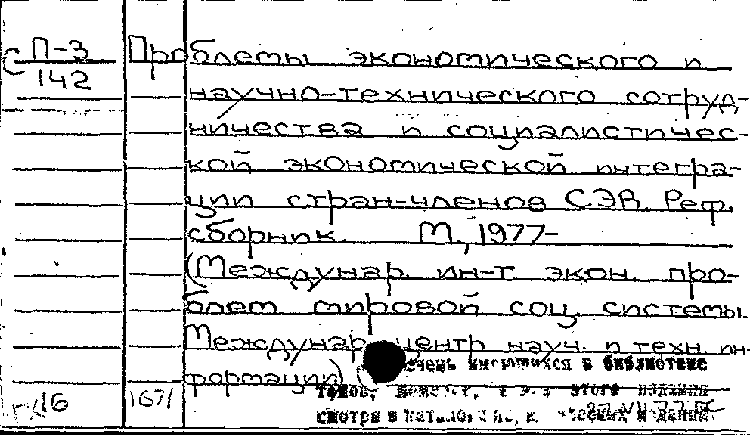 С П-3
142
Проблемы экономического и
научно-технического сотруд-
ничества и социалистичес-
кой экономической интегра-
ции стран-членов СЭВ. Реф.
сборник. М., 1977-
(Междунар. ин-т экон. про-
блем мировой соц. системы.
Междунар. центр науч. и техн. ин-
формации)
имеющихся в библиотеке
томов, этого издания
смотри в
16
167/